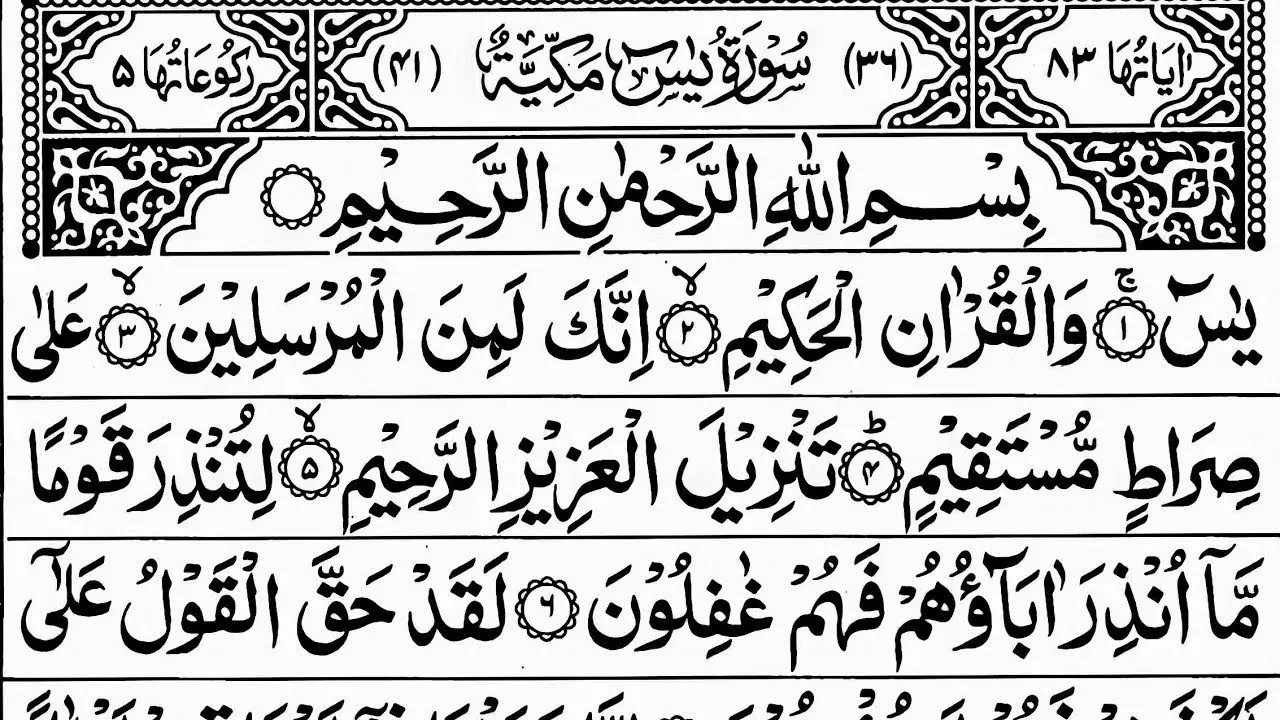 اٰیَاتُهَا ۸۳ (۳۶) سُوْرَةُ یٰسٓ مَکِّیَّةٌ (۴۱) رُکُوْعَاتُهَا ۵
بِسْمِ اللّٰهِ الرَّحْمٰنِ الرَّحِیْمِ
یٰسٓ ۚ﴿۱﴾ وَالْقُرْاٰنِ الْحَکِیْمِ ۙ﴿۲﴾ اِنَّكَ لَمِنَ الْمُرْسَلِیْنَ ۙ﴿۳﴾ عَلٰی
صِرَاطٍ مُّسْتَقِیْمٍ ؕ﴿۴﴾ تَنْزِیْلَ الْعَزِیْزِ الرَّحِیْمِ ۙ﴿۵﴾ لِتُنْذِرَ قَوْمًا
مَّاۤ اُنْذِرَ اٰبَآؤُهُمْ فَهُمْ غٰفِلُوْنَ ﴿۶﴾ لَقَدْ حَقَّ الْقَوْلُ عَلٰۤی